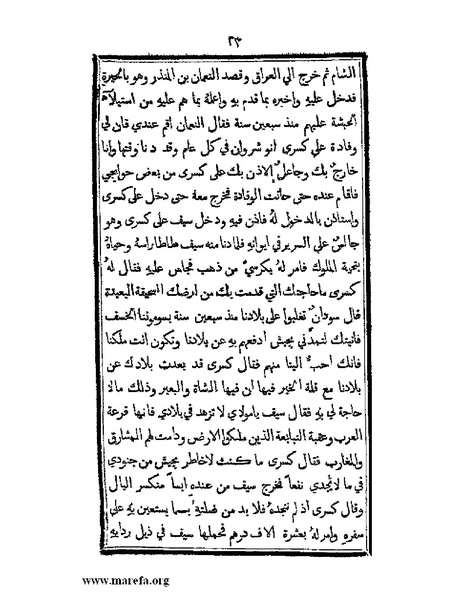 ٢٣
الشام ثم خرج الي العراق وقصد النعمان بن المنذر وهو بالحيرة
فدخل عليه واخبره بما قدم به واعلمة بما هم عليه من استيلاء
الحبشة عليهم منذ سبعين سنة فقال النعمان اقم عندي فان لي
وفادة على كسرى انو شروان في كل عام وقد دنا وقتها وانا
خارج بك وجاعل الاذن بك على كسرى من بعض حوايجي
فاقام عنده حتى حانت الوفادة فخرج معة حتى دخل على كسرى
واستاذن بالدخول لهُ فاذن فيه ودخل سيف على كسرى وهو
جالس علي السرير في ايوانه فلما دنا منه سيف طاطا راسهُ وحياهُ
بتحية الملوك فامر لهُ بكرسي من ذهب فجلس عليه فقال لهُ
كسرى ما حاجتك التي قدمت بك من ارضك السحيقة البعيدة
قال سودان تغلبوا على بلادنا منذ سبعين سنة يسوموننا الخسف
فاتيتك لتمدني بجيش ادفعهم به عن بلادنا وتكون انت ملكنا
فانك احب الينا منهم فقال كسرى قد بعدت بلادك عن
بلادنا مع قلة الخير فيها ان فيها الشاة والبعير وذلك مالا
حاجة لي به فقال سيف يا مولاي لا تزهد في بلادي فانها قرعة
العرب التبابعة الذين ملكوا الارض ودانت لهم المشارق
والمغارب فقال كسرى ما كنت لاخاطر بجيش من جنودي
في ما لا يجدي نفعاً فخرج سيف من عنده ايساً منكسر البال
وقال كسرى اذ لم ننجدهُ فلا بد من بما يستعين به على
سفره وامر لهُ بعشرة الاف درهم فحملها سيف في ذيل ردايه
www.marefa.org